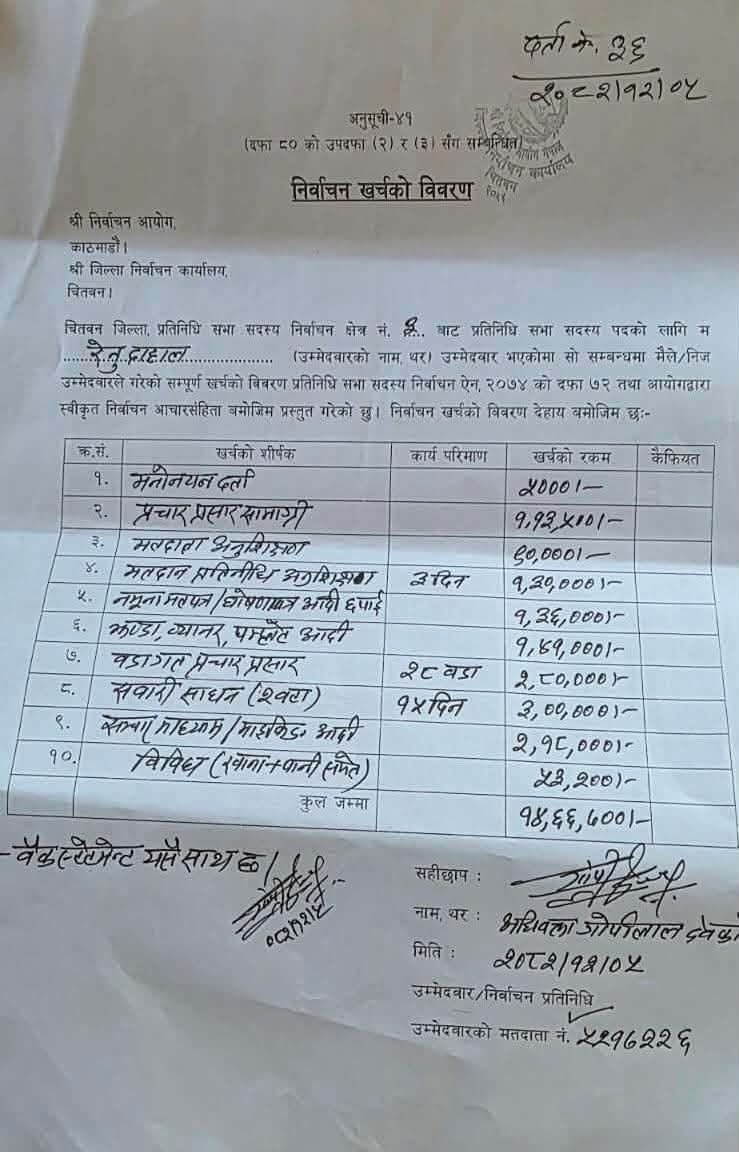 दर्ता नं. ३६
२०८२/१२/०५
अनुसूची-४१
(दफा ८० को उपदफा (२) र (३) सँग सम्बन्धित)
निर्वाचन कार्यालय
चितवन
निर्वाचन खर्चको विवरण
श्री निर्वाचन आयोग,
काठमाडौं।
श्री जिल्ला निर्वाचन कार्यालय,
चितवन।
चितवन जिल्ला, प्रतिनिधि सभा सदस्य निर्वाचन क्षेत्र नं. बाट प्रतिनिधि सभा सदस्य पदको लागि म
......रेनु दाहाल.................. (उम्मेदवारको नाम, थर) उम्मेदवार भएकोमा सो सम्बन्धमा मैले/निज
उम्मेदवारले गरेको सम्पूर्ण खर्चको विवरण प्रतिनिधि सभा सदस्य निर्वाचन ऐन, २०७४ को दफा ७२ तथा आयोगद्वारा
स्वीकृत निर्वाचन आचारसंहिता बमोजिम प्रस्तुत गरेको छु। निर्वाचन खर्चको विवरण देहाय बमोजिम छः-
क्र.सं. खर्चको शीर्षक कार्य परिमाण खर्चको रकम कैफियत
१. मनोनयन दर्ता ५०००।-
२. प्रचार प्रसार सामाग्री १,१३,५००।-
३. मतदाता अनुशिक्षण ९०,०००।-
४. मतदान प्रतिनीधि अनुशिक्षण ३ दिन १,३०,०००।-
५. नमूना मतपत्र/घोषणापत्र आदी छपाई १,३६,०००।-
६. झण्डा, व्यानर, पम्प्लेट आदी १,४१,०००।-
७. वडागत प्रचार प्रसार २८ वडा २,८०,०००।-
८. सवारी साधन (२वटा) १५ दिन ३,००,०००।-
९. सञ्चार माध्यम/माइकिङ आदी २,१८,०००।-
१०. विविध (खाना+पानी समेत) ५३,२००।-
कुल जम्मा १४,६६,७००।-
- बैंक स्टेटमेन्ट यसै साथ छ।
०८२/१२/५
सहीछाप :
नाम, थर : अधिवक्ता गोपीलाल
मिति : २०८२/१२/०५
उम्मेदवार/निर्वाचन प्रतिनिधि ✓
उम्मेदवारको मतदाता नं. ५२१७२२६